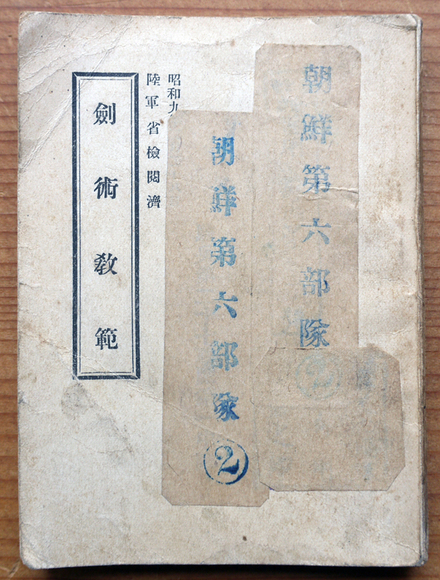 朝鮮第六部隊
朝鮮第六部隊②
昭和九
陸軍省檢閲濟
劍術敎範